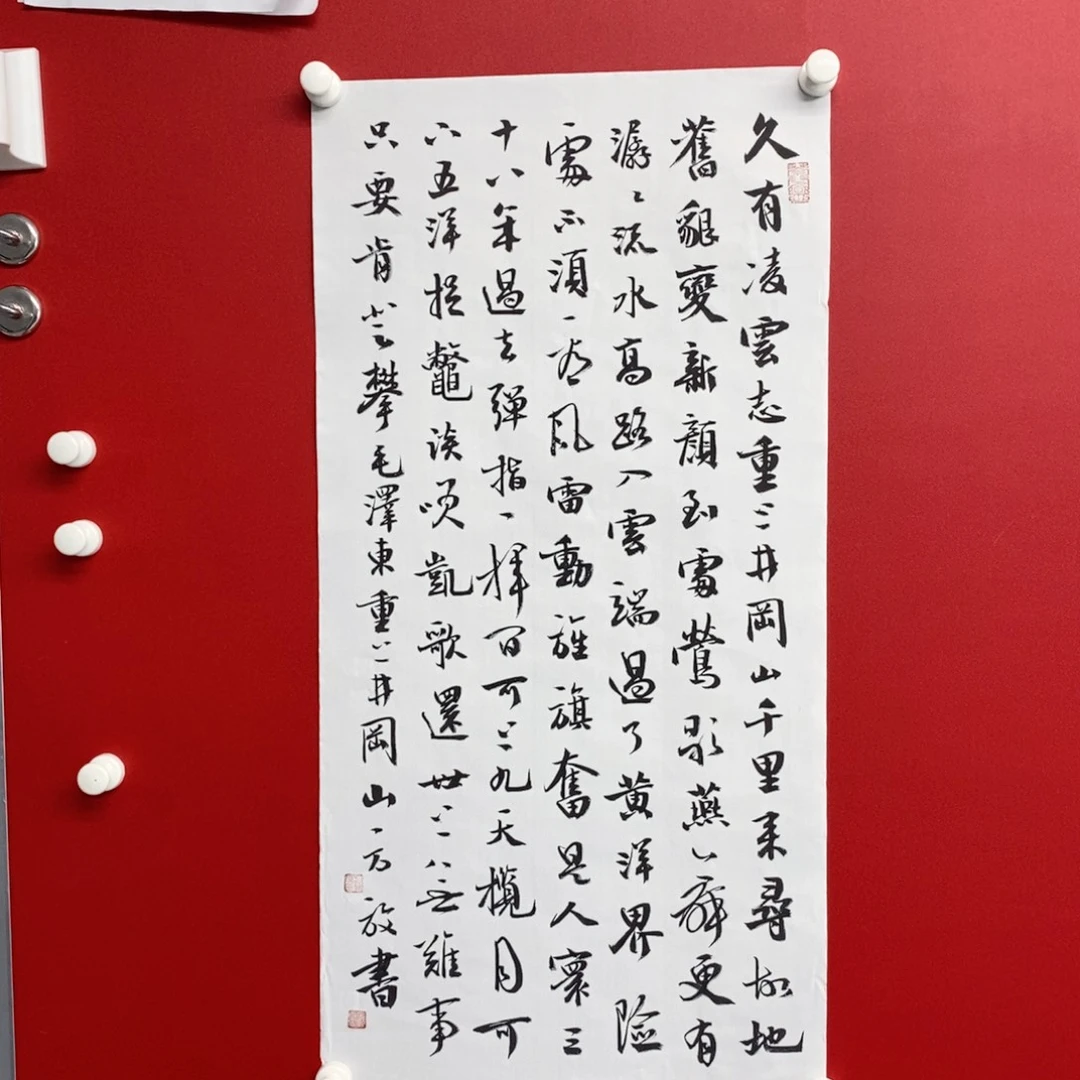 久有凌雲志重上井岡山千里来尋故地
舊貌變新顔到處鶯歌燕舞更有
潺〻流水高路入雲端過了黄洋界險
處不須看風雷動旌旗奮是人寰三
十八年過去彈指一揮間可上九天攬月可
下五洋捉鱉談笑凱歌還世上無難事
只要肯登攀毛澤東重上井岡山放書